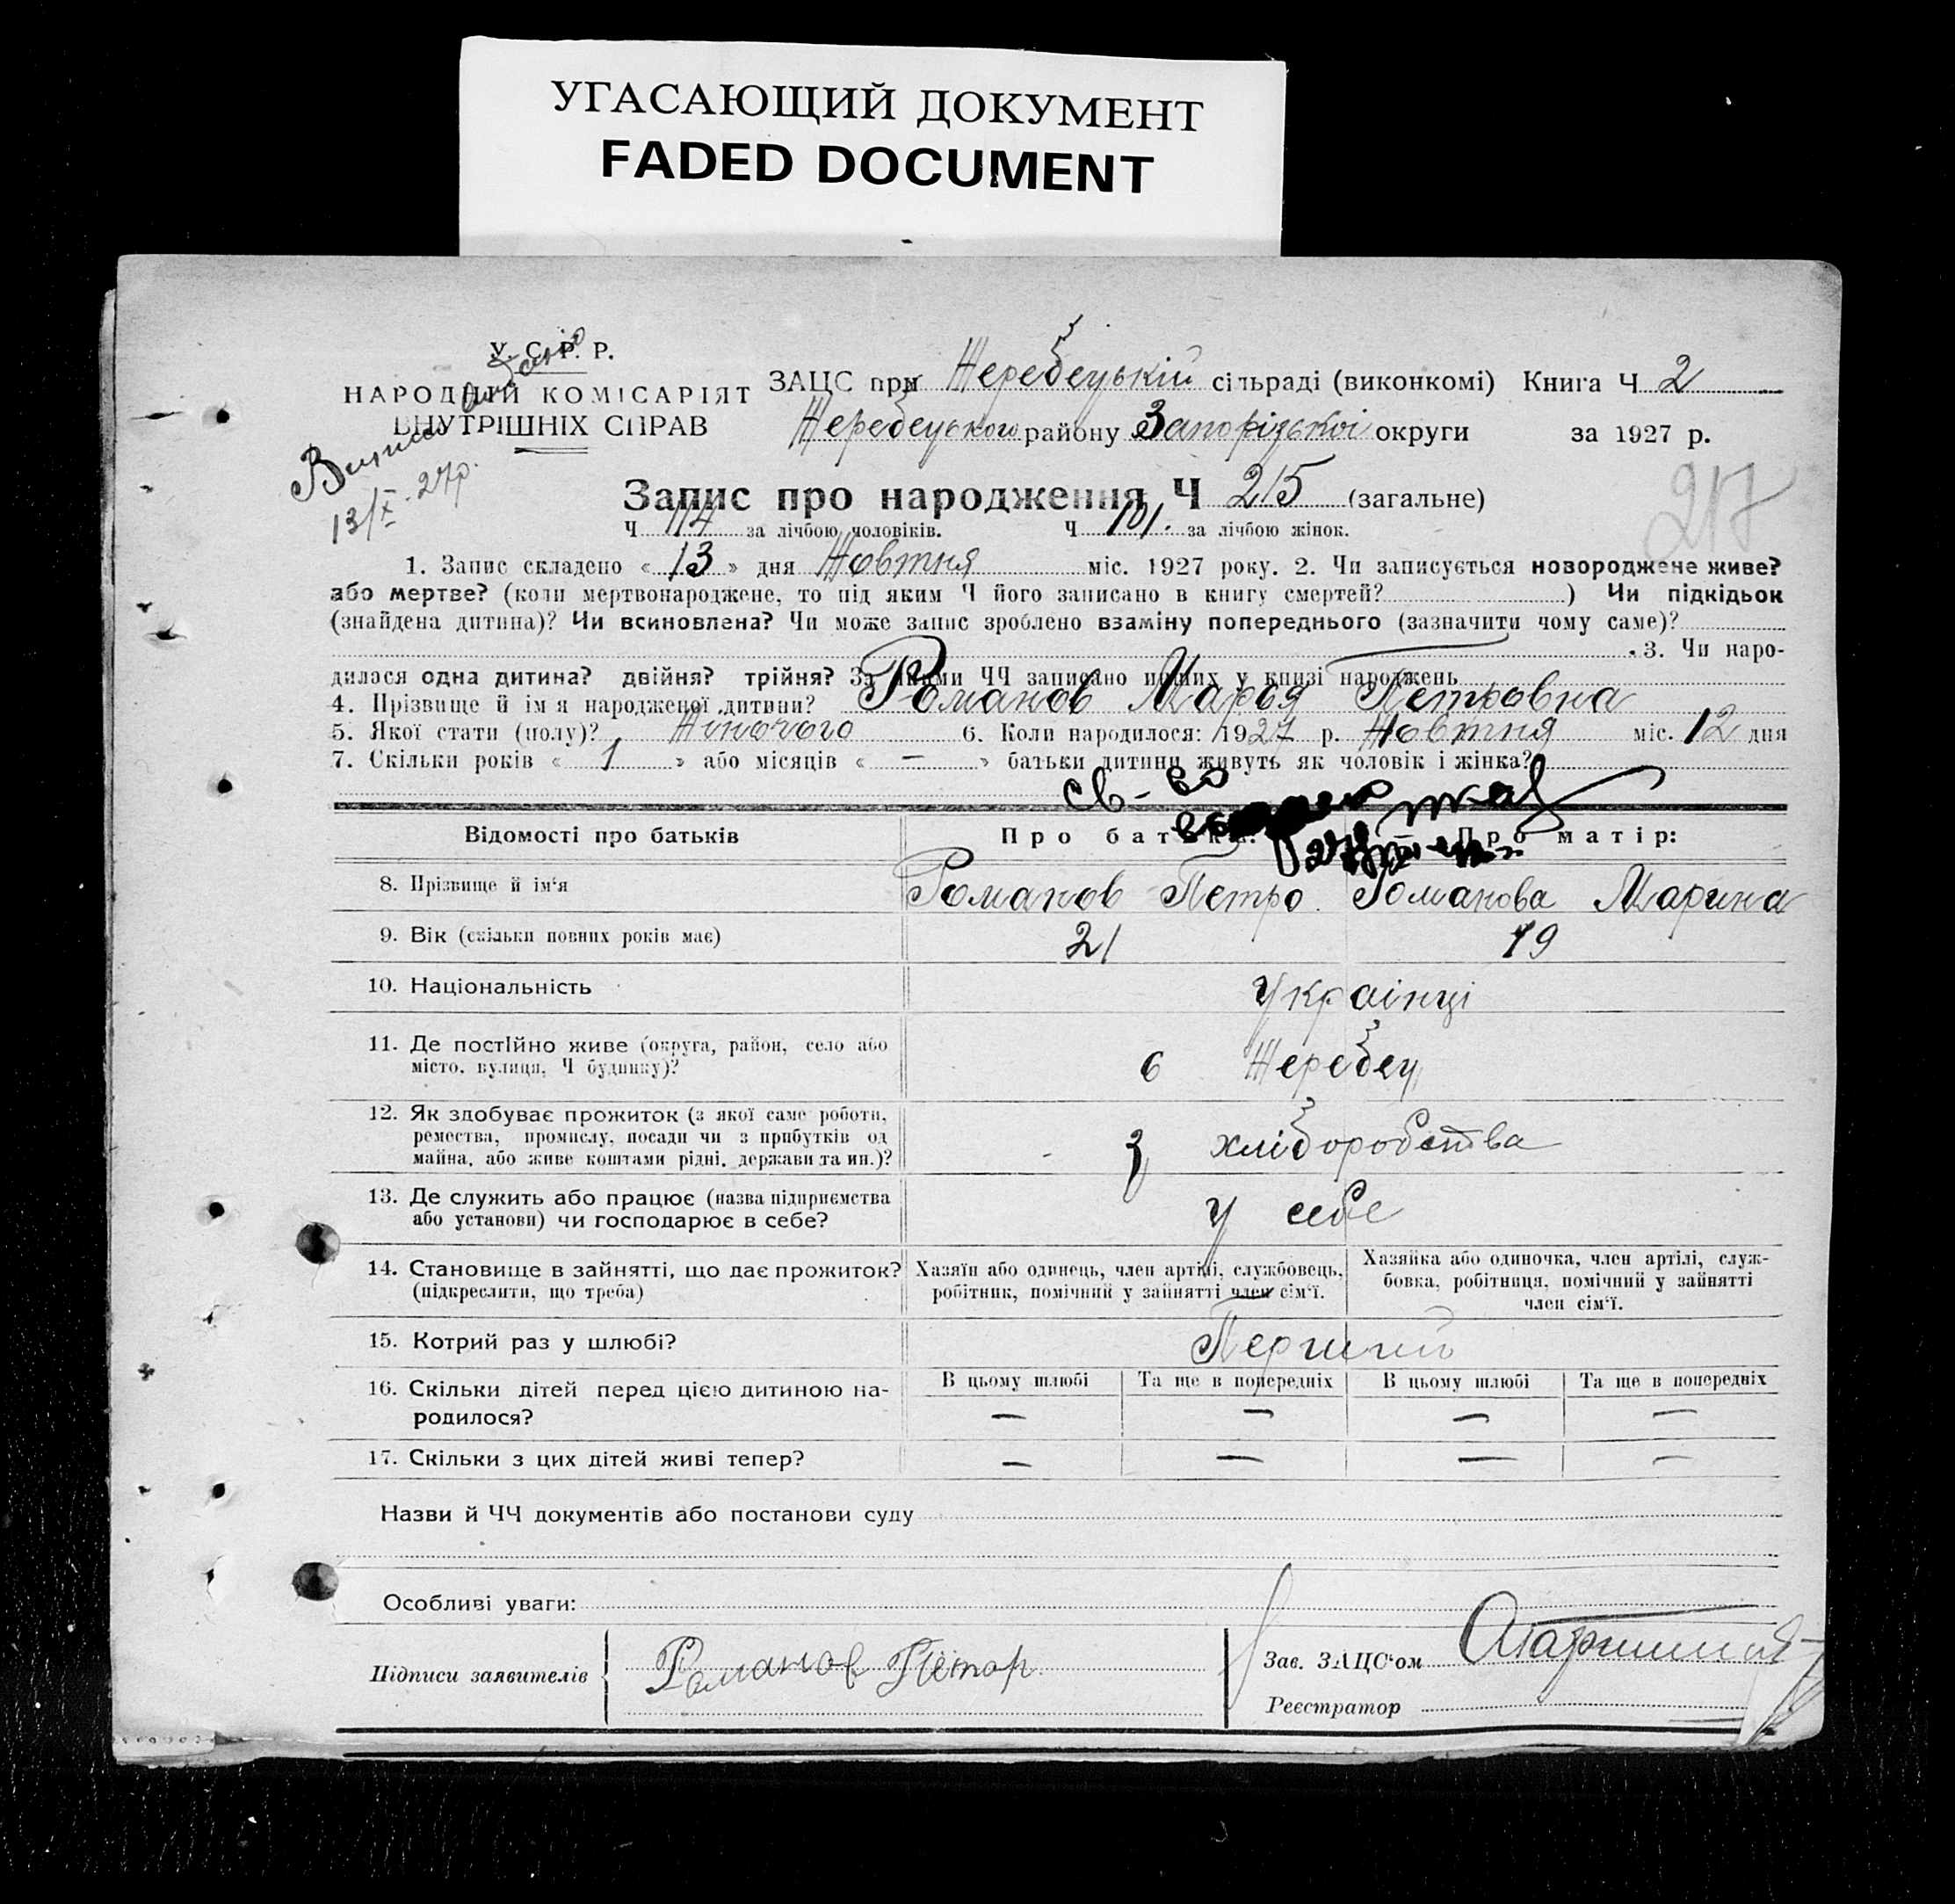 УГАСАЮЩИЙ ДОКУМЕНТ
FADED DOCUMENT
У. С. Р. Р.
НАРОДНІЙ КОМІСАРІЯТ
ВНУТРІШНІХ СПРАВ
13/X 27р.
ЗАЦС при Жеребецькій сільраді (виконкомі) Книга Ч 2
Жеребецького району Запорізької округи за 1927 р.
Запис про народження Ч 215 (загальне)
217
Ч 114 за лічбою чоловіків. Ч 101. за лічбою жінок.
1. Запис складено « 13 » дня Жовтня міс. 1927 року. 2. Чи записується новороджене живе?
або мертве? (коли мертвонароджене, то під яким Ч його записано в книгу смертей? ) Чи підкідьок
(знайдена дитина)? Чи всиновлена? Чи може запис зроблено взаміну попереднього (зазначити чому саме)?
3. Чи наро-
дилося одна дитина? двійня? трійня? За якими ЧЧ записано инших у книзі народжень
4. Прізвище й ім'я народженої дитини? Романов Марія Петровна
5. Якої стати (полу)? Жіночого 6. Коли народилося: 1927 р. Жовтня міс. 12 дня
7. Скільки років « 1 » або місяців « — » батьки дитини живуть як чоловік і жінка?
св-во
Відомості про батьків Про батька: Про матір:
8. Прізвище й ім'я Романов Петро. Романова Марина
9. Вік (скільки повних років має) 21 19
10. Національність Українці
11. Де постійно живе (округа, район, село або
місто, вулиця, Ч будинку)? с Жеребец
12. Як здобуває прожиток (з якої саме роботи,
ремества, промислу, посади чи з прибутків од
майна, або живе коштами рідні, держави та ин.)? з хліборобства
13. Де служить або працює (назва підприємства
або установи) чи господарює в себе? у себе
14. Становище в зайнятті, що дає прожиток?
(підкреслити, що треба)
Хазяїн або одинець, член артілі, службовець,
робітник, помічний у зайнятті член сім'ї.
Хазяйка або одиночка, член артілі, служ-
бовка, робітниця, помічний у зайнятті
член сім'ї.
15. Котрий раз у шлюбі? Перший
16. Скільки дітей перед цією дитиною на-
родилося?
В цьому шлюбі Та ще в попередніх В цьому шлюбі Та ще в попередніх
— — — —
17. Скільки з цих дітей живі тепер? — — — —
Назви й ЧЧ документів або постанови суду
Особливі уваги:
Підписи заявителів Романов Петор
Зав. ЗАЦС'ом
Реєстратор